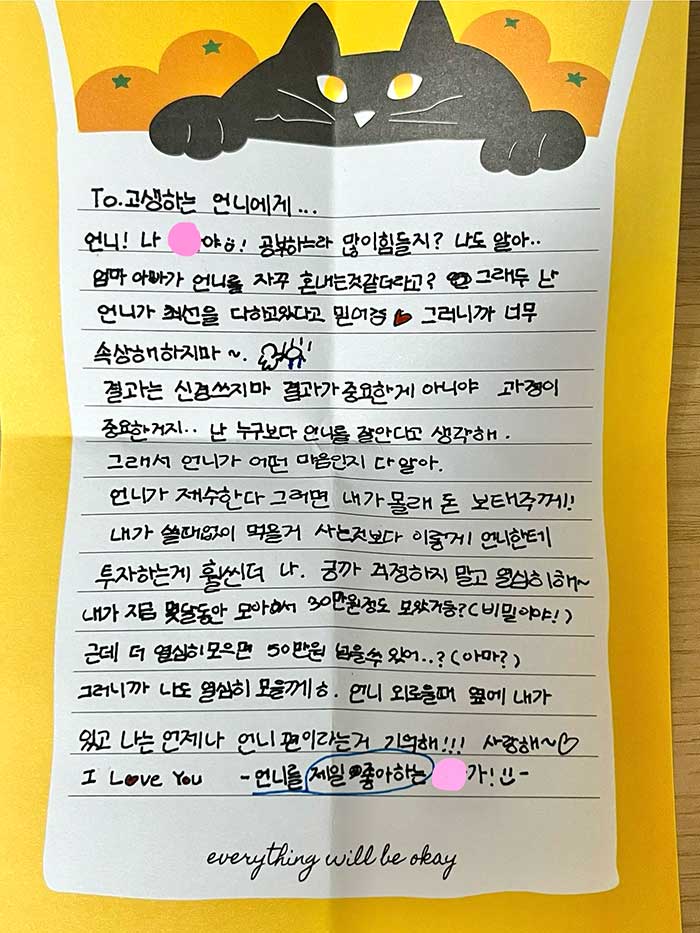 To.고생하는 언니에게...
언니! 나 야ö! 공부하느라 많이힘들지? 나도 알아..
엄마 아빠가 언니를 자꾸 혼내는것같더라고? 그래두 난
언니가 최선을 다하고있다고 믿어경 ♥ 그러니까 너무
속상해하지마~.
결과는 신경쓰지마 결과가 중요한게 아니야 과정이
중요한거지.. 난 누구보다 언니를 잘안다고 생각해.
그래서 언니가 어떤 마음인지 다 알아.
언니가 재수한다 그러면 내가 몰래 돈 보태주께!
내가 쓸때없이 먹을거 사는것보다 이렇게 언니한테
투자하는게 훨씬더 나. 긍까 걱정하지 말고 열심히해~
내가 지금 몇달동안 모아서 30만원정도 모았거등?(비밀이야!)
근데 더 열심히모으면 50만원 넘을쑤 있어..?(아마?)
그러니까 나도 열심히 모을께ㅎ. 언니 외로울때 옆에 내가
있고 나는 언제나 언니 편이라는거 기억해!!! 사랑해~♡
I Love You - 언니를 제일 좋아하는 가! -
everything will be okay